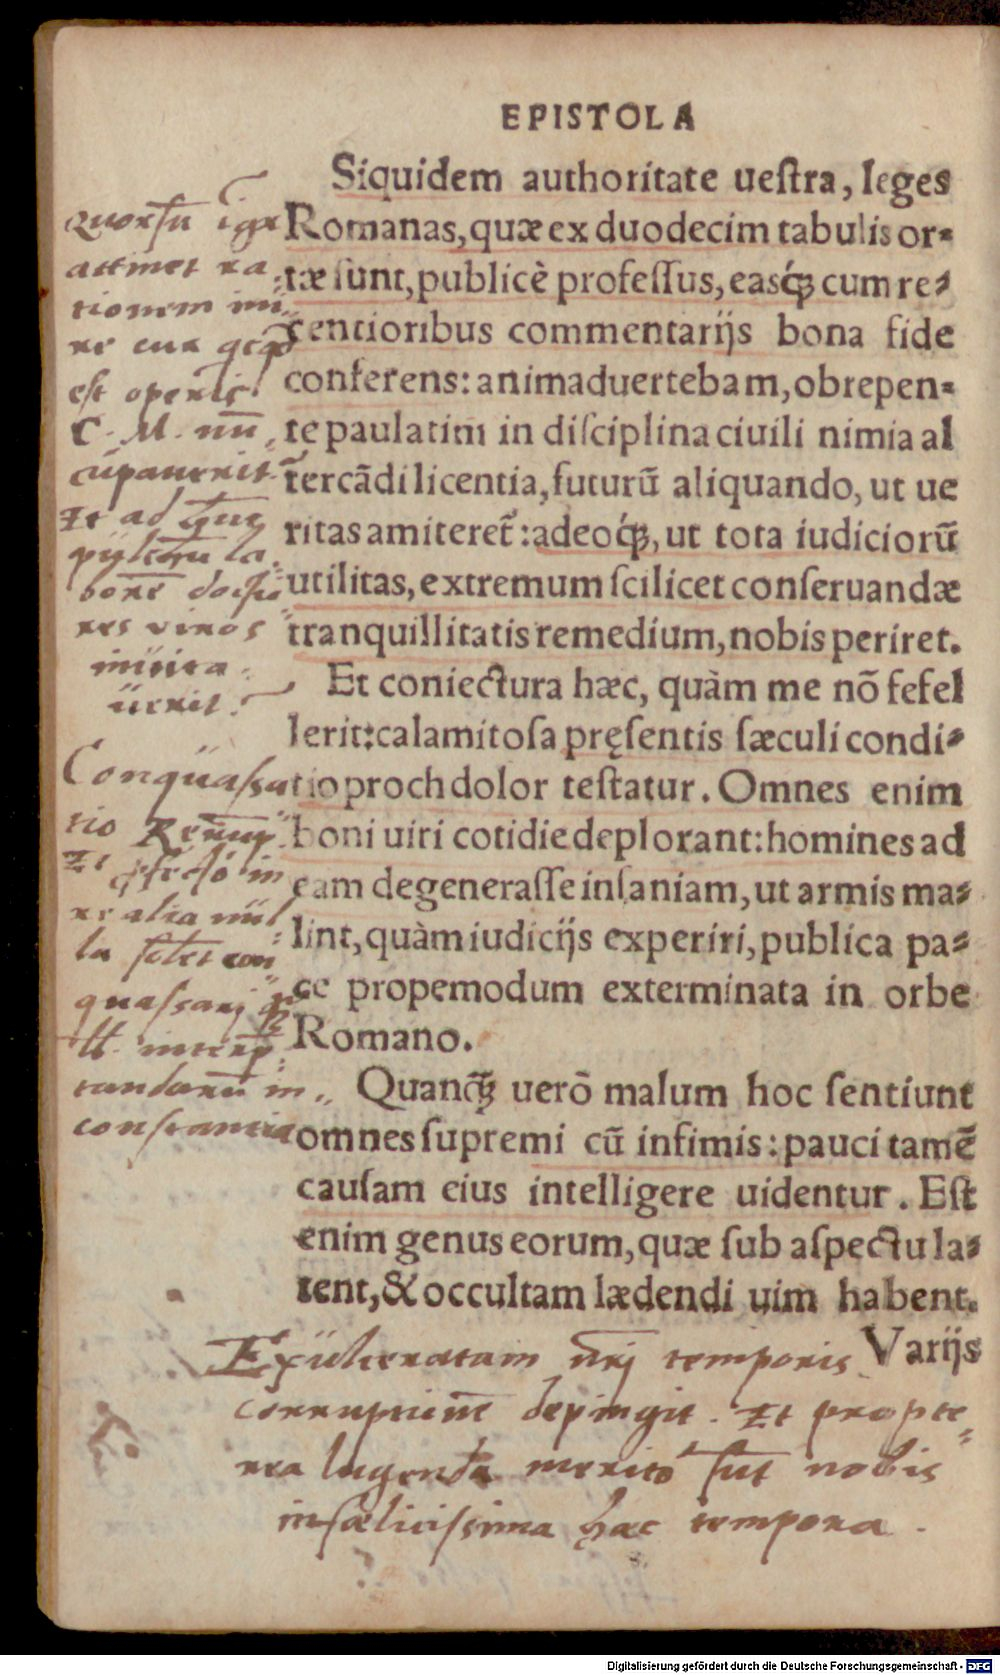 EPISTOLA
Siquidem authoritate ueſtra, leges
Romanas, quæ ex duodecim tabulis or-
tæ ſunt, publicè profeſſus, easq́; cum re-
centioribus commentarijs bona fide
conferens: animaduertebam, obrepen-
te paulatim in diſciplina ciuili nimia al
tercãdi licentia, futurũ aliquando, ut ue
ritas amiteret̃: adeoq́;, ut tota iudiciorũ
utilitas, extremum ſcilicet conſeruandæ
tranquillitatis remedium, nobis periret.
Et coniectura hæc, quàm me nõ fefel
lerit: calamitoſa pręſentis ſæculi condi-
tio proch dolor teſtatur. Omnes enim
boni uiri cotidie deplorant: homines ad
eam degeneraſſe inſaniam, ut armis ma-
lint, quàm iudicijs experiri, publica pa-
ce propemodum exterminata in orbe
Romano.
Quanq̃ꝫ uerõ malum hoc ſentiunt
omnes ſupremi cũ infimis: pauci tamẽ
cauſam eius intelligere uidentur. Eſt
enim genus eorum, quæ ſub aſpectu la-
tent, & occultam lædendi uim habent.
Varijs
Quorſũ
attinet ra
tionem ini
re cur
est operis
C. M. nũ
cupauerit
Et ad
la
bore
res viros
inuita
uerit.
Conquaſſa
tio
Et in
re alia nul
la ſolet con
quaſſari
ll. interp
tandarũ in
conſtantia
Exulceratam nr̃j temporis
corruptionẽ depingit. Et propte-
rea lugenda merito ſũt nobis
infælicissima hæc tempora.
Digitalisierung gefördert durch die Deutsche Forschungsgemeinschaft - DFG